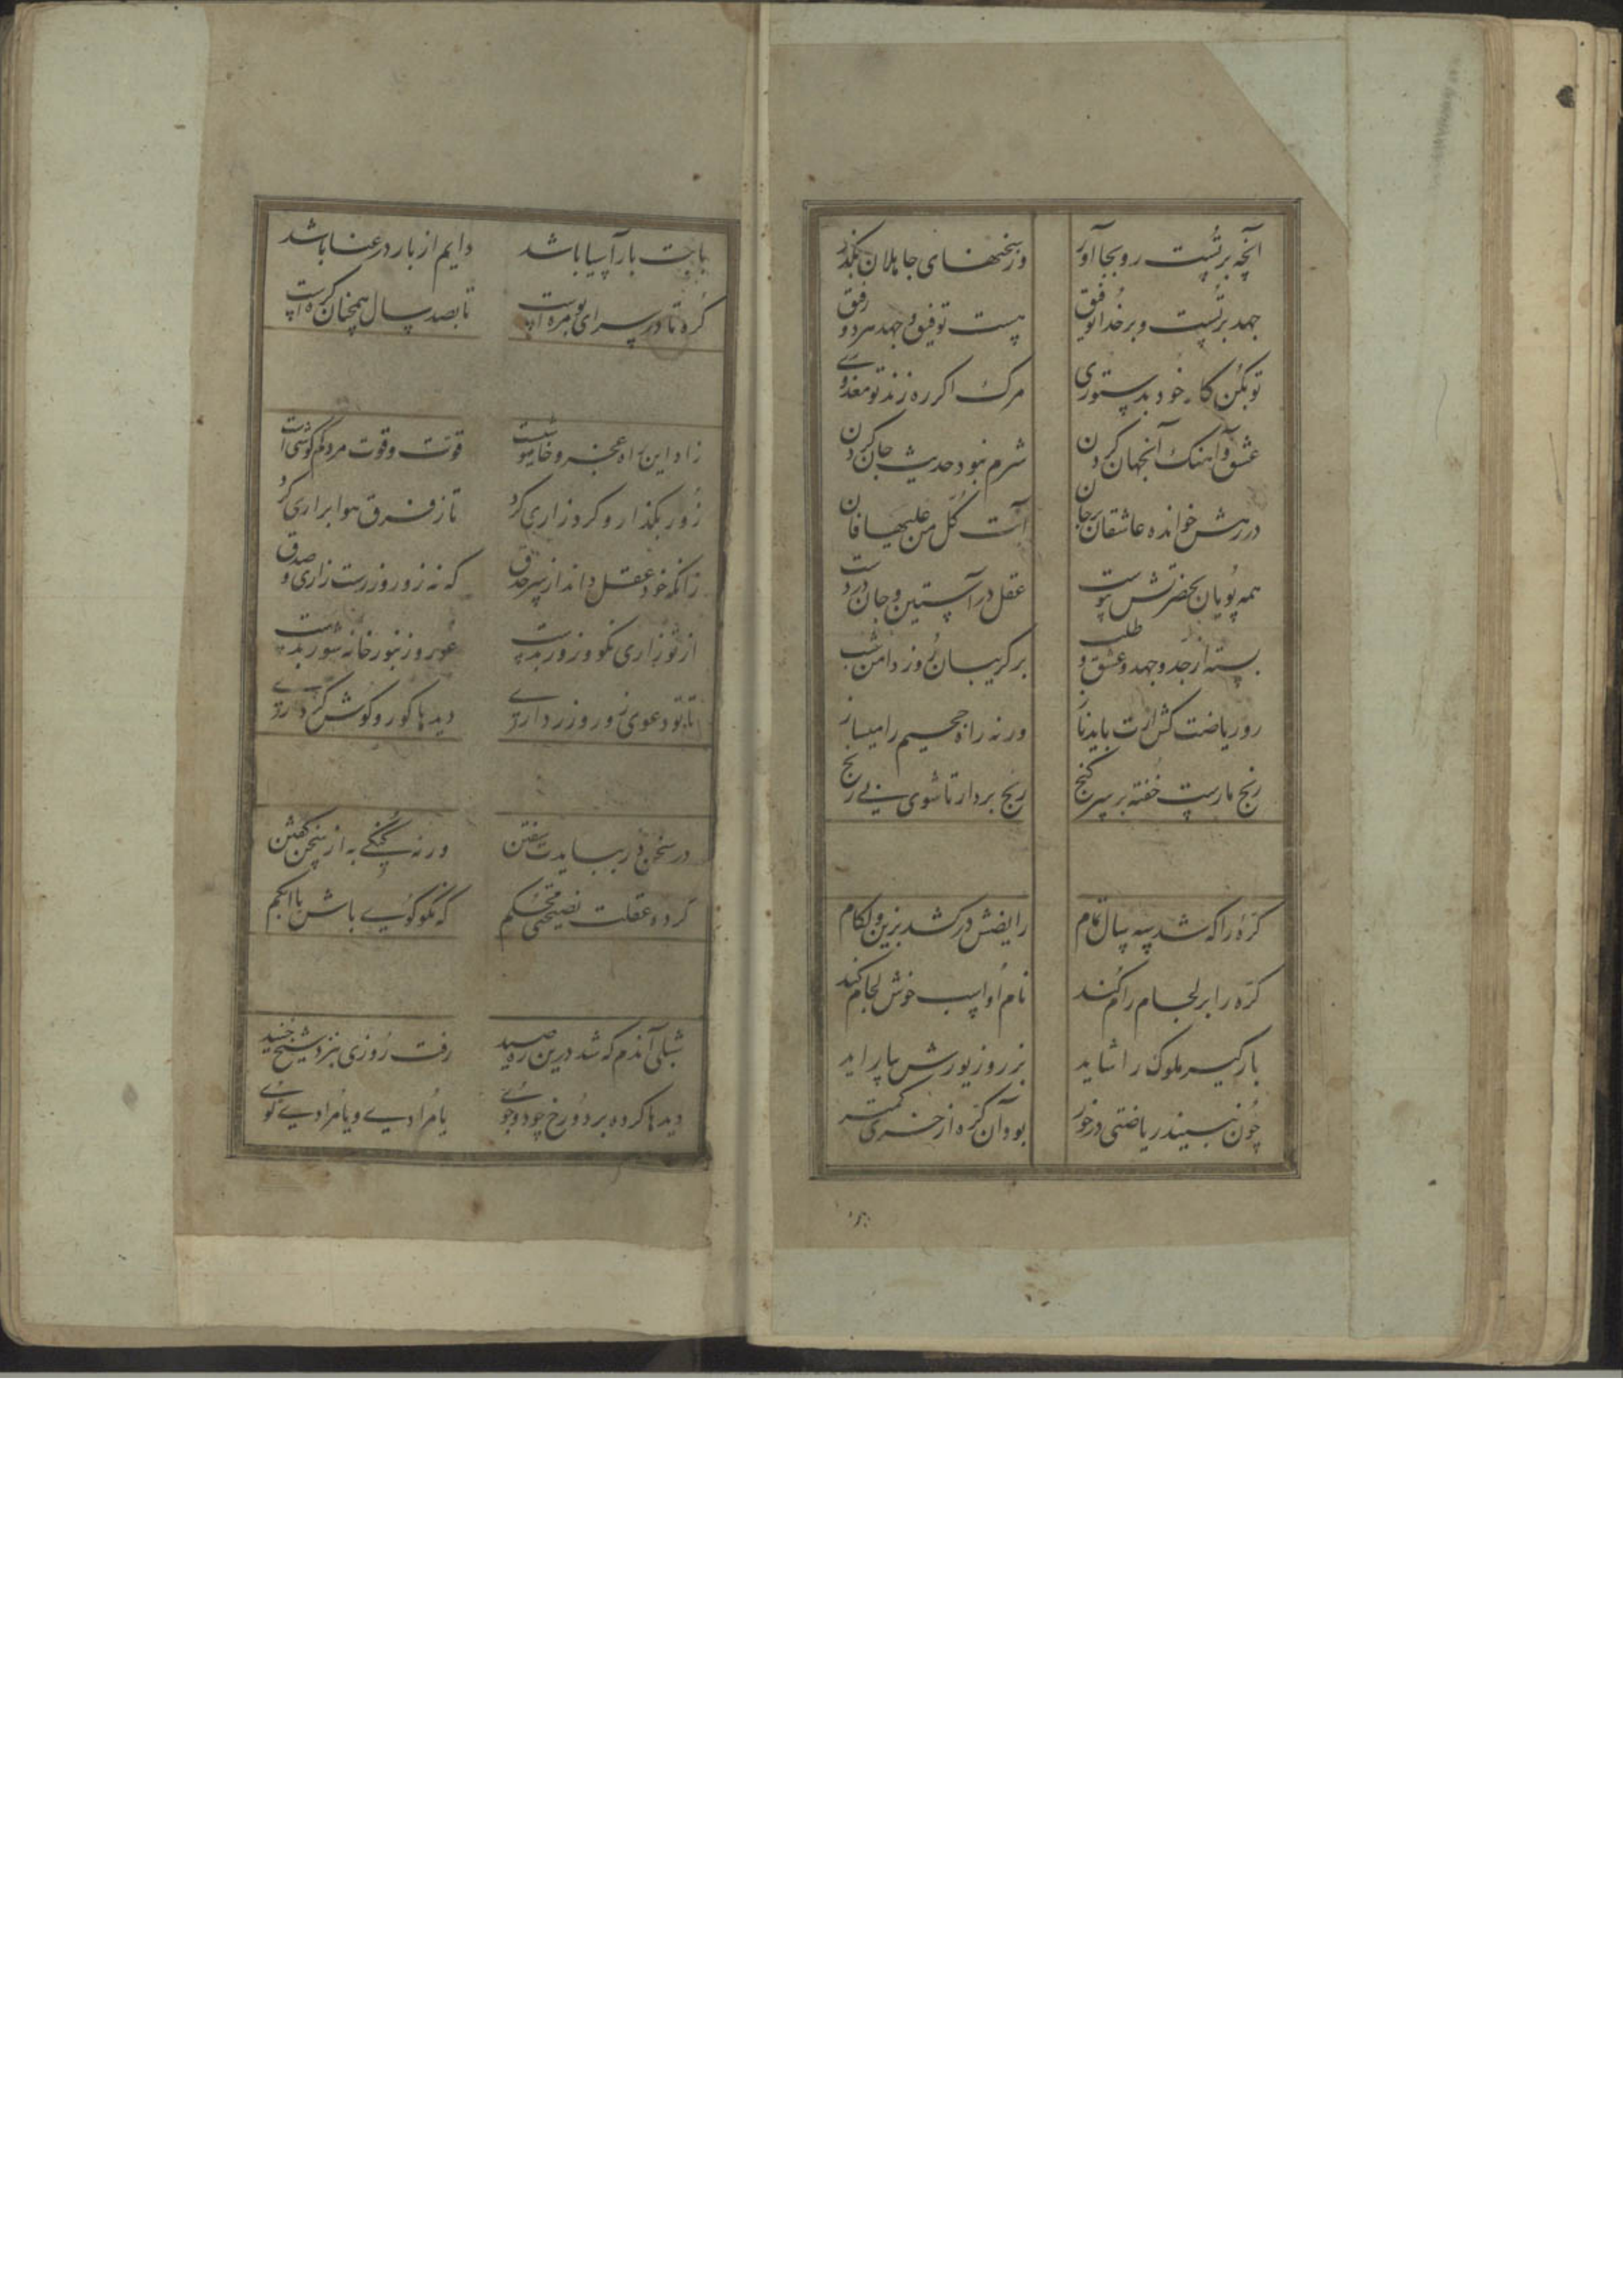 آنچه برتست رو بجا آور وز سخنهای جاهلان بگذر
جهد برتست و بر خدا توفیق هست توفیق و جهد هر دو رفیق
تو بکن کار خود بدستوری مرک اکر ره زند تو معذوری
عشق و آهنک آنجهان کردن شرم نبود حدیث جان کردن
در رهش خوانده عاشقان بر جان آیت کل من علیها فان
همه پویان بحضرتش پیوست عقل در آستین و جان در دست
بسته از جد و جهد و عشق و طلب بر کریبان روز دامن شب
رو ریاضت کش ارت باید ناز ورنه راه جحیم را میساز
رنج مارست خفته بر سر کنج رنج بردار تا شوی بی رنج
کره را که شد سه سال تمام رایضش درکشد بزین و لکام
کره را بر لجام رام کند نام او اسب خوش لجام کند
بارکیر ملوک را شاید بزر و زیورش بیاراید
چون نبیند ریاضتی درخور بود آن کره از خری کمتر
بابت بار آسیا باشد دایم از بار در عنا باشد
کره تا در سرای بومره است تا بصد سال همچنان کره است
زاد این راه عجز و خاموشیست قوت و قوت مردم کوشی است
زور بکذار و کرد زاری کرد تا ز فرق هوا براری کرد
زانکه خود عقل داند از سر حدق که نه زور و زرست زاری و صدق
از تو زاری نکو و زور بدست عور و زنبور خانه شور بدست
تا تو دعوی زور و زر داری دیدها کور و کوش کر داری
در سخن در ببایدت سفتن ورنه کنکی به از سخن کفتن
کرده عقلت نصیحتی محکم که نکو کوی باش یا ابکم
شبلی آندم که شد درین ره صید رفت روزی بنزد شیخ جنید
دیدها کرده بر دو رخ چو دو جوی یا مرادی و یا مرادی کوی